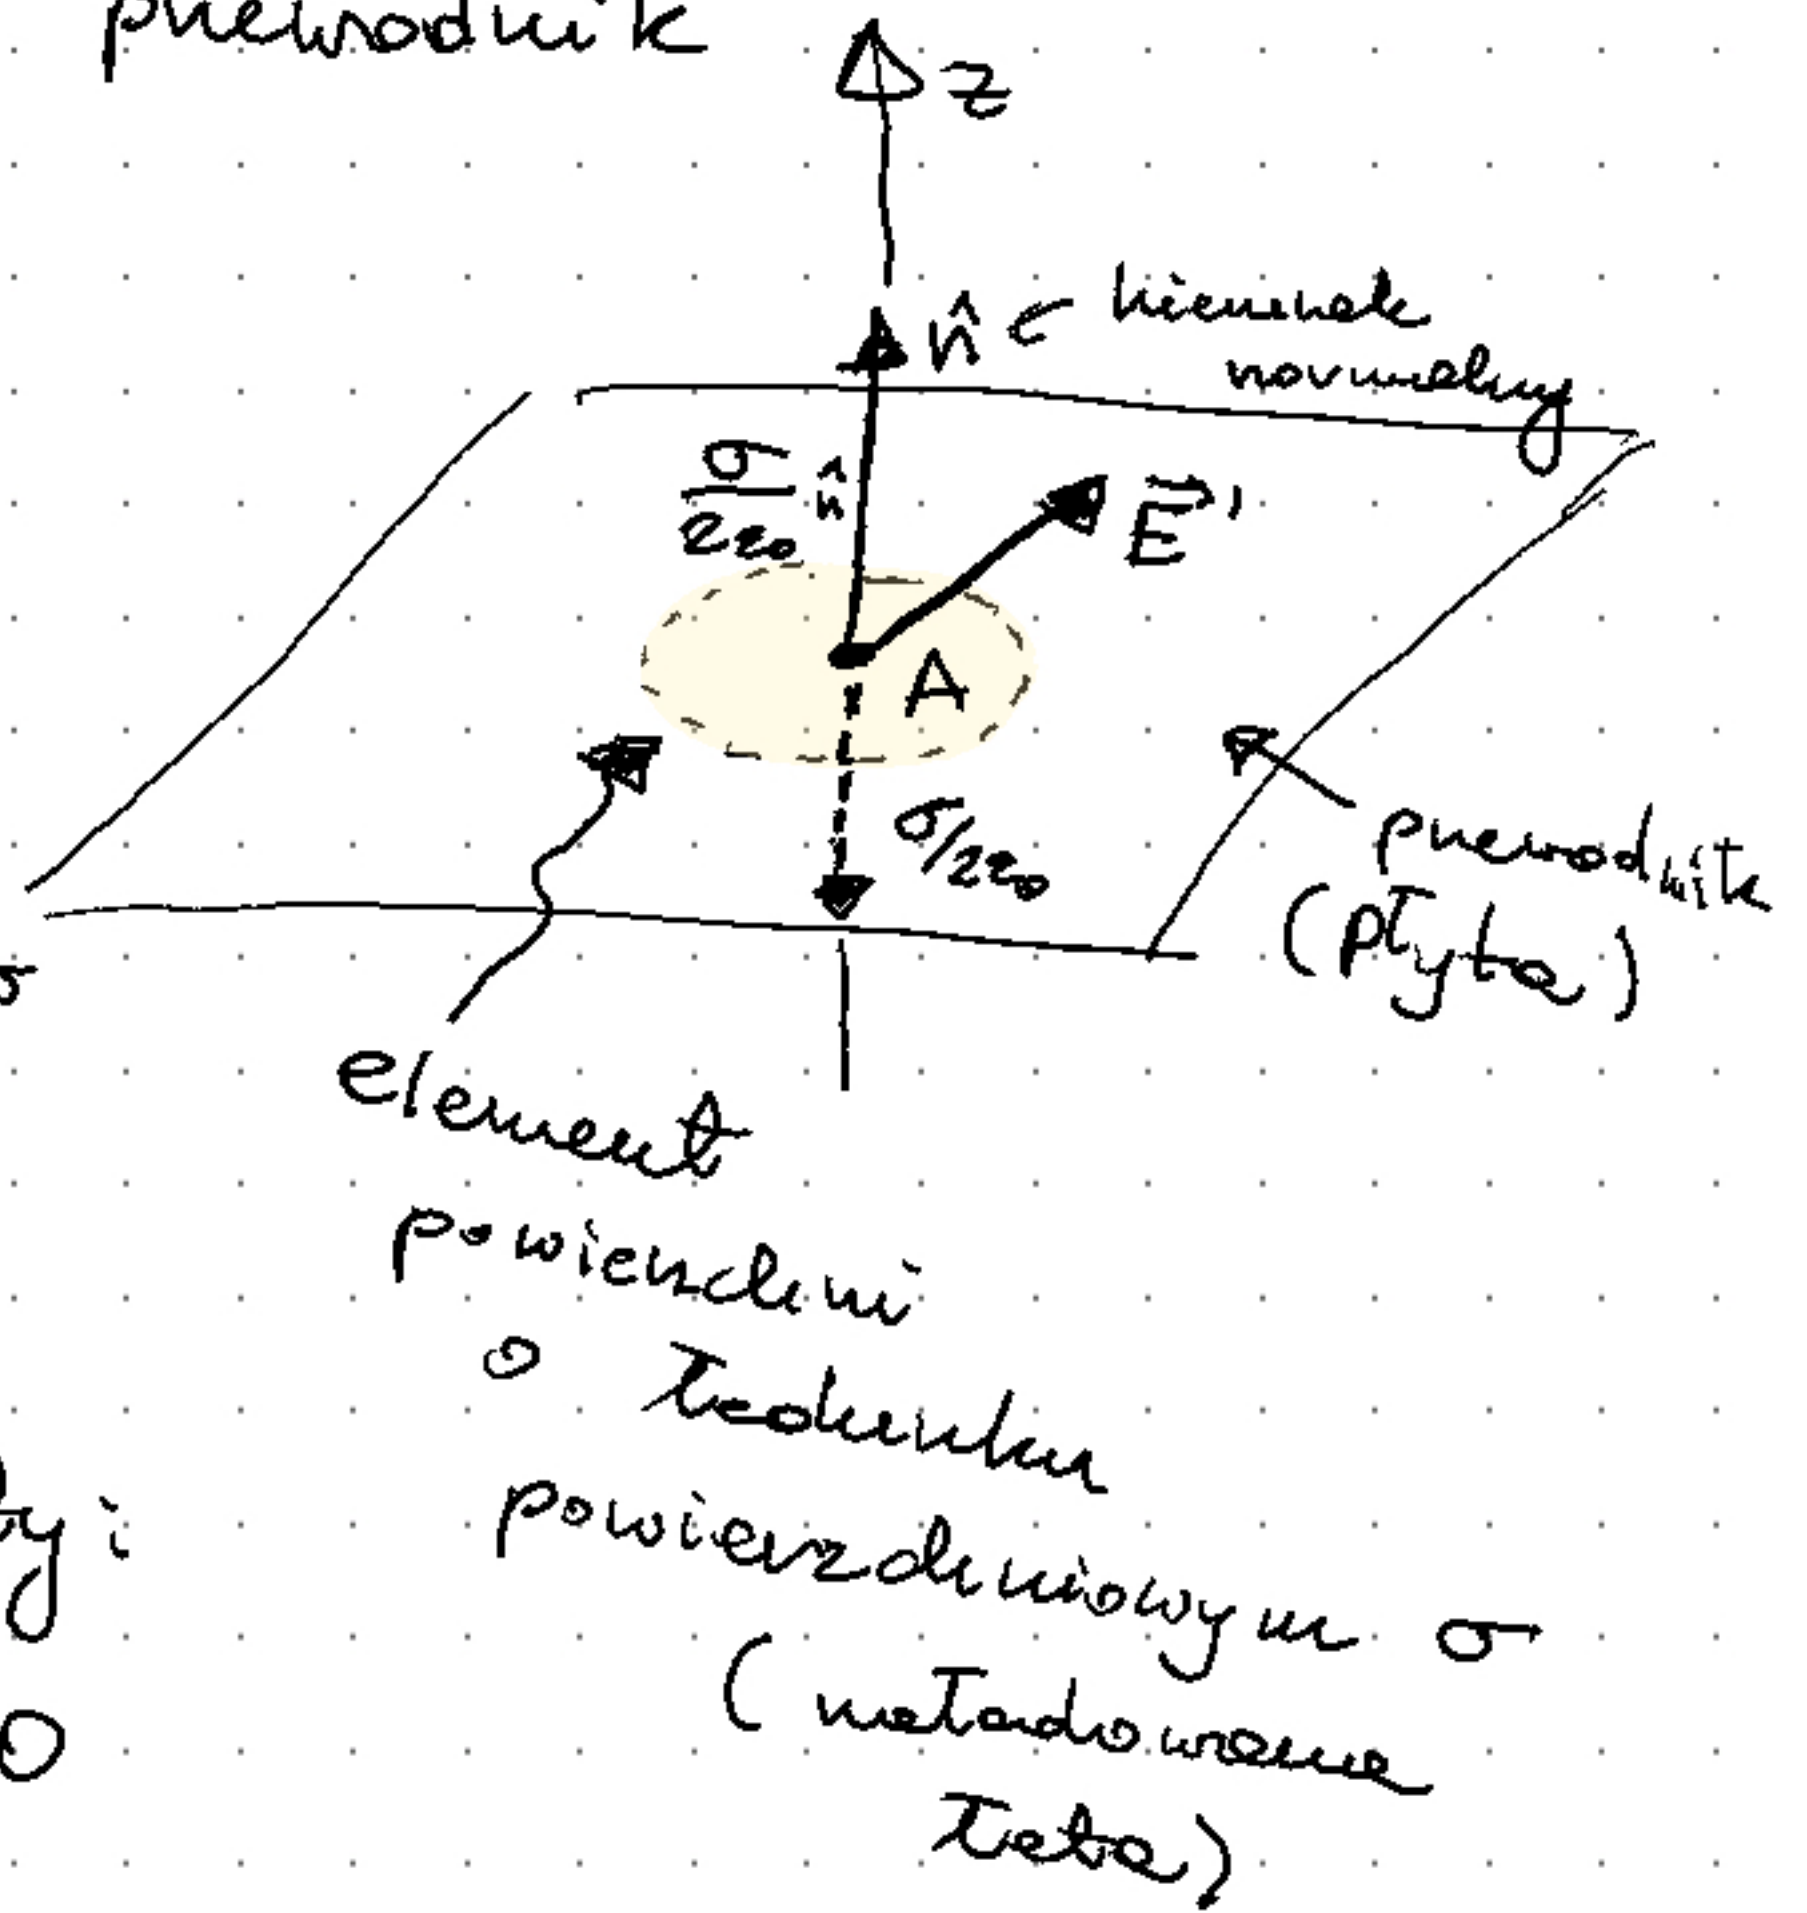 przewodnik
z
n̂ ← kierunek
normalny
σ/2ε₀ n̂
E⃗'
A
σ/2ε₀
przewodnik
(płyta)
σ
element
powierzchni
o ładunku
powierzchniowym σ
(naładowana
łata)
0